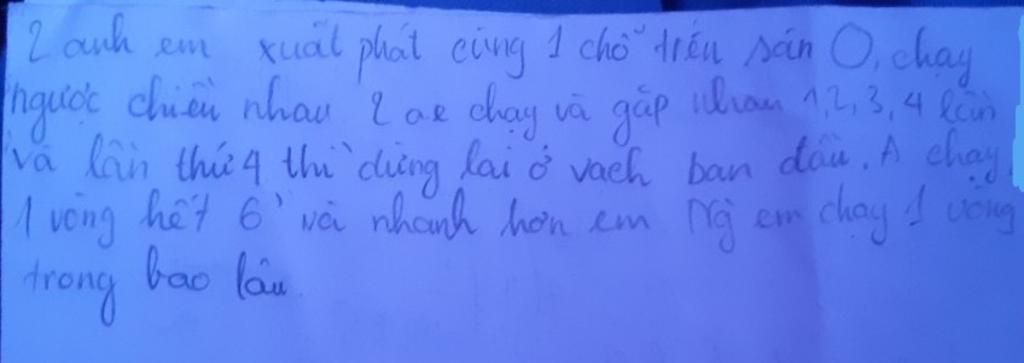 2 anh em xuất phát cùng 1 chỗ trên sân O, chạy
ngược chiều nhau 2 ae chạy và gặp nhau 1, 2, 3, 4 lần
và lần thứ 4 thì dừng lại ở vạch ban đầu. A chạy
1 vòng hết 6' và nhanh hơn em Ng em chạy 1 vòng
trong bao lâu.